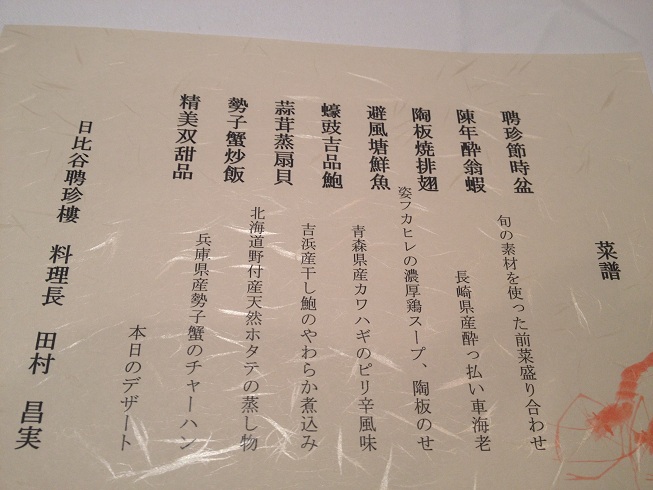 菜譜
聘珍節時盆
旬の素材を使った前菜盛り合わせ
陳年酔翁蝦
長崎県産酔っ払い車海老
陶板焼排翅
姿フカヒレの濃厚鶏スープ、陶板のせ
避風塘鮮魚
青森県産カワハギのピリ辛風味
蠔豉吉品鮑
吉浜産干し鮑のやわらか煮込み
蒜茸蒸扇貝
北海道野付産天然ホタテの蒸し物
勢子蟹炒飯
兵庫県産勢子蟹のチャーハン
精美双甜品
本日のデザート
日比谷聘珍樓 料理長 田村 昌実